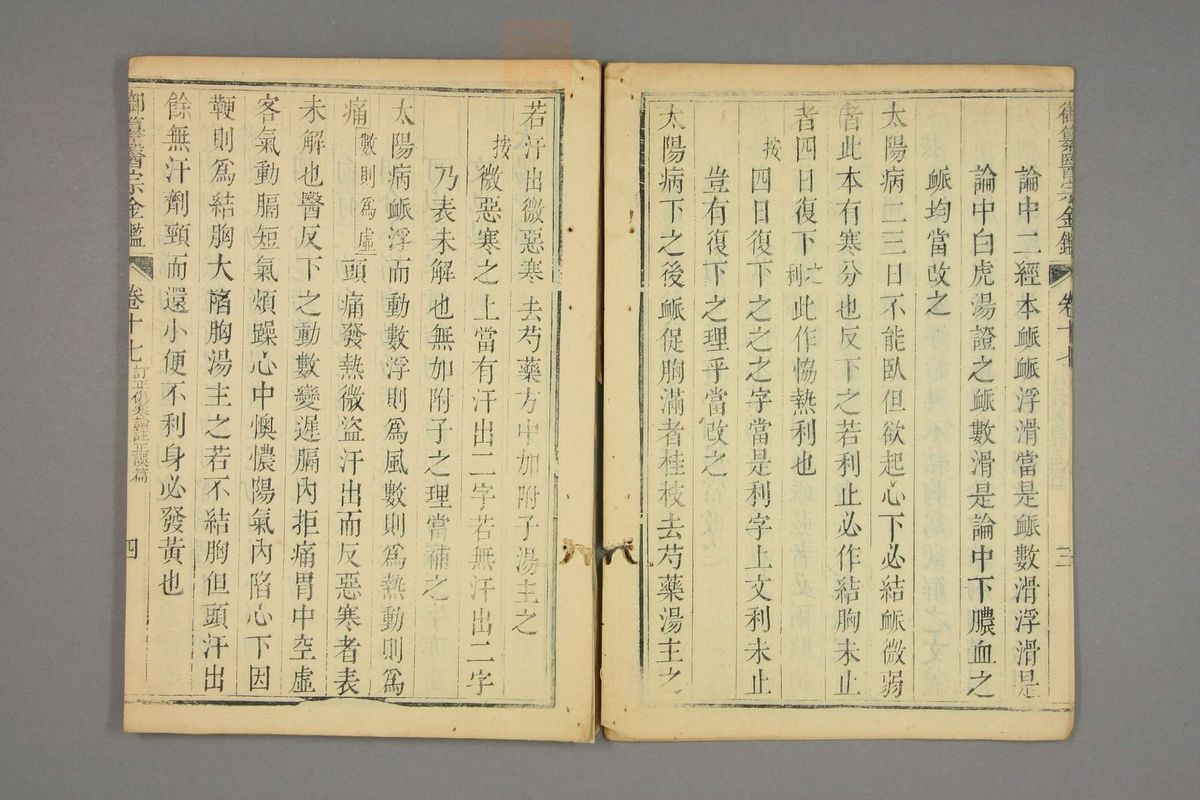 御纂醫宗金鑑 卷十七 三
論中二經本䘑䘑浮滑當是䘑數滑浮滑是
論中白虎湯證之䘑數滑是論中下膿血之
䘑均當改之
太陽病二三日不能臥但欲起心下必結䘑微弱
者此本有寒分也反下之若利止必作結胸未止
者四日復下之利此作恊熱利也
按四日復下之之字當是利字上文利未止
豈有復下之理乎當改之
太陽病下之後䘑促胸滿者桂枝去芍藥湯主之
若汗出微惡寒去芍藥方中加附子湯主之
按微惡寒之上當有汗出二字若無汗出二字
乃表未解也無加附子之理當補之
太陽病䘑浮而動數浮則爲風數則爲熱動則爲
痛數則爲虛頭痛發熱微盜汗出而反惡寒者表
未解也醫反下之動數變遲膈內拒痛胃中空虛
客氣動膈短氣煩躁心中懊憹陽氣內陷心下因
鞕則爲結胸大陷胸湯主之若不結胸但頭汗出
餘無汗劑頸而還小便不利身必發黃也
御纂醫宗金鑑 卷十七 訂正傷寒論註正誤篇 四